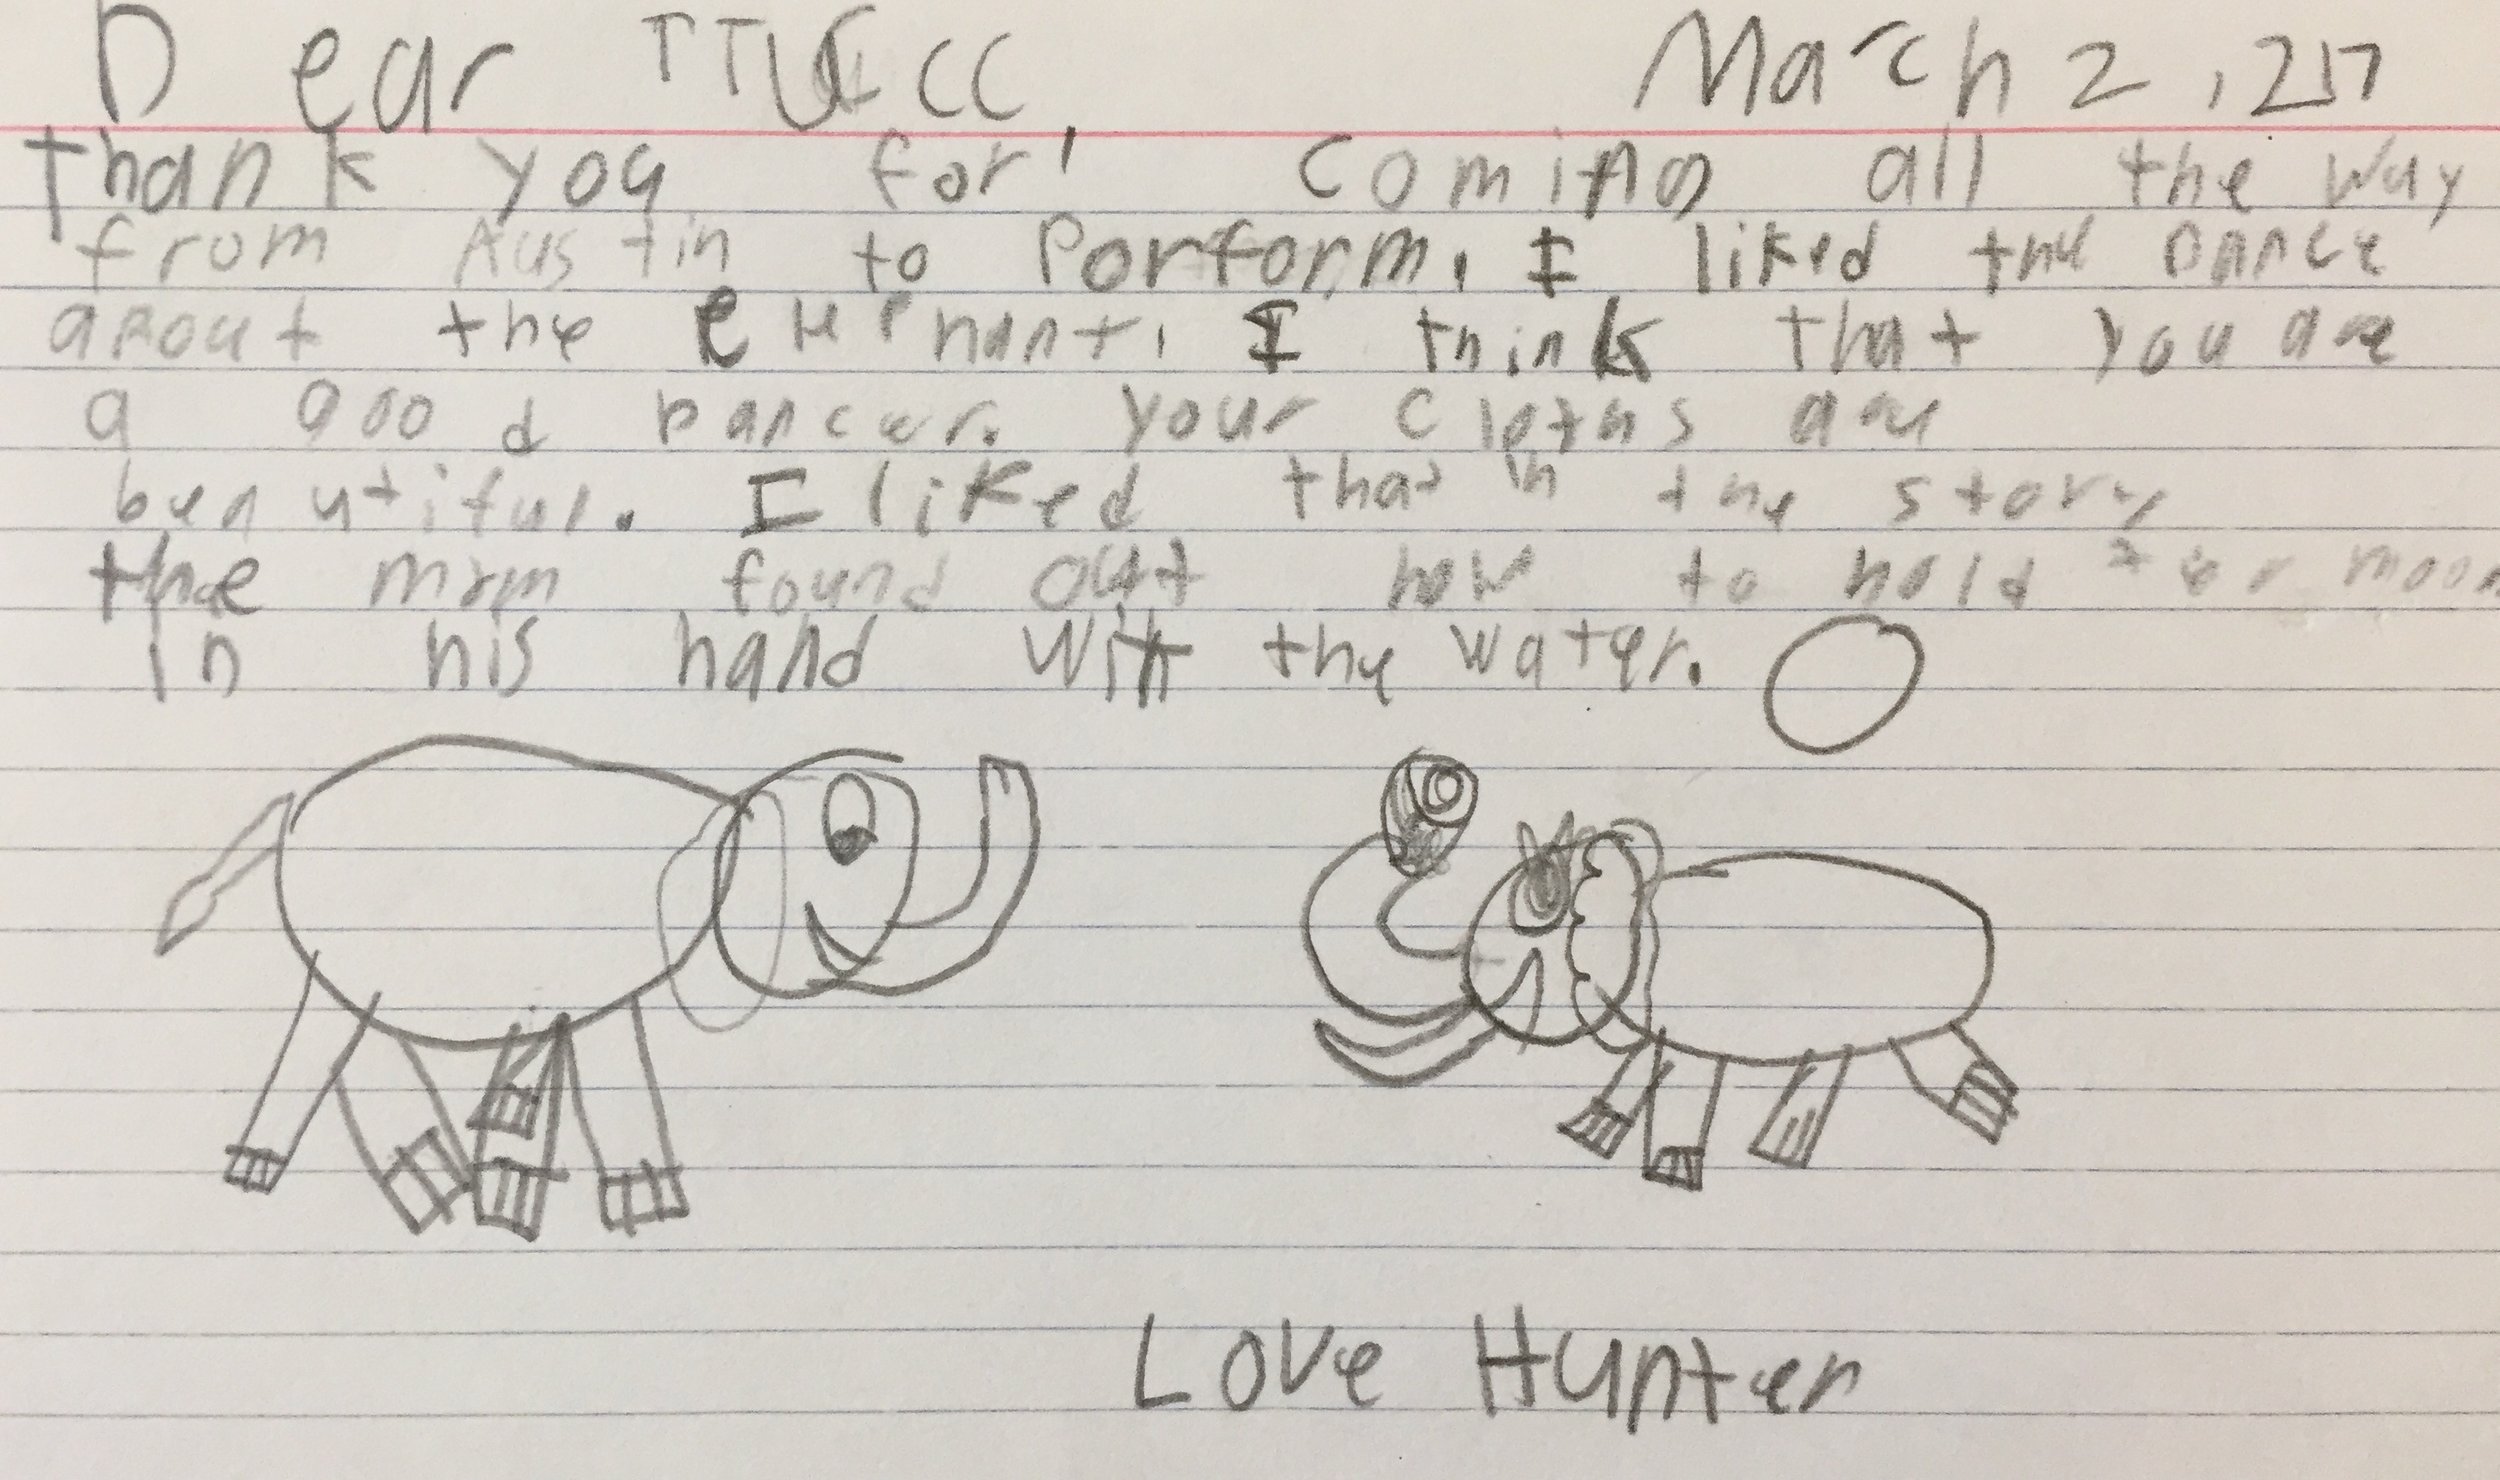 Dear TTUCC, March 2, 217
thank you for coming all the way
from Austin to Porform. I liked the Dance
about the eHePhant. I think that you are
a good Dancer. your cloths are
beautiful. I liked that in the story
the mom found out how to hold ther moon
in his hand with the water.
Love Hunter